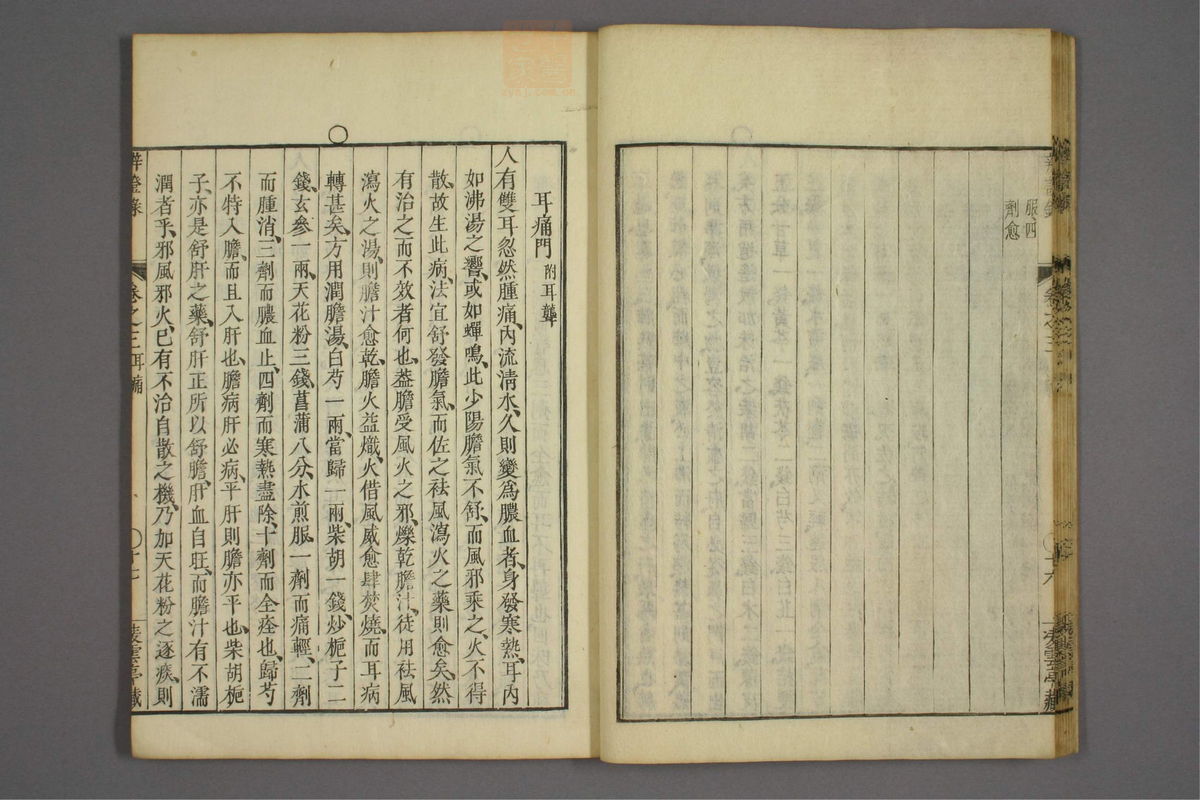 服四
劑愈
十六
凌雲亭藏
耳痛門 附耳聾
人有雙耳忽然腫痛、內流清水、久則變爲膿血者、身發寒熱、耳內
如沸湯之響、或如蟬鳴、此少陽膽氣不舒、而風邪乘之、火不得
散、故生此病、法宜舒發膽氣、而佐之祛風瀉火之藥則愈矣、然
有治之而不效者何也、葢膽受風火之邪、爍乾膽汁、徒用祛風
瀉火之湯、則膽汁愈乾、膽火益熾、火借風威愈肆焚燒、而耳病
轉甚矣、方用潤膽湯、白芍一兩、當歸一兩、柴胡一錢、炒梔子二
錢、玄參一兩、天花粉三錢、菖蒲八分、水煎服、一劑而痛輕、二劑
而腫消、三劑而膿血止、四劑而寒熱盡除、十劑而全痊也、歸芍
不特入膽、而且入肝也、膽病肝必病、平肝則膽亦平也、柴胡梔
子、亦是舒肝之藥、舒肝正所以舒膽、肝血自旺、而膽汁有不濡
潤者乎、邪風邪火、巳有不治自散之機、乃加天花粉之逐痰、則
辨證錄
卷之三耳痛
十七
凌雲亭藏